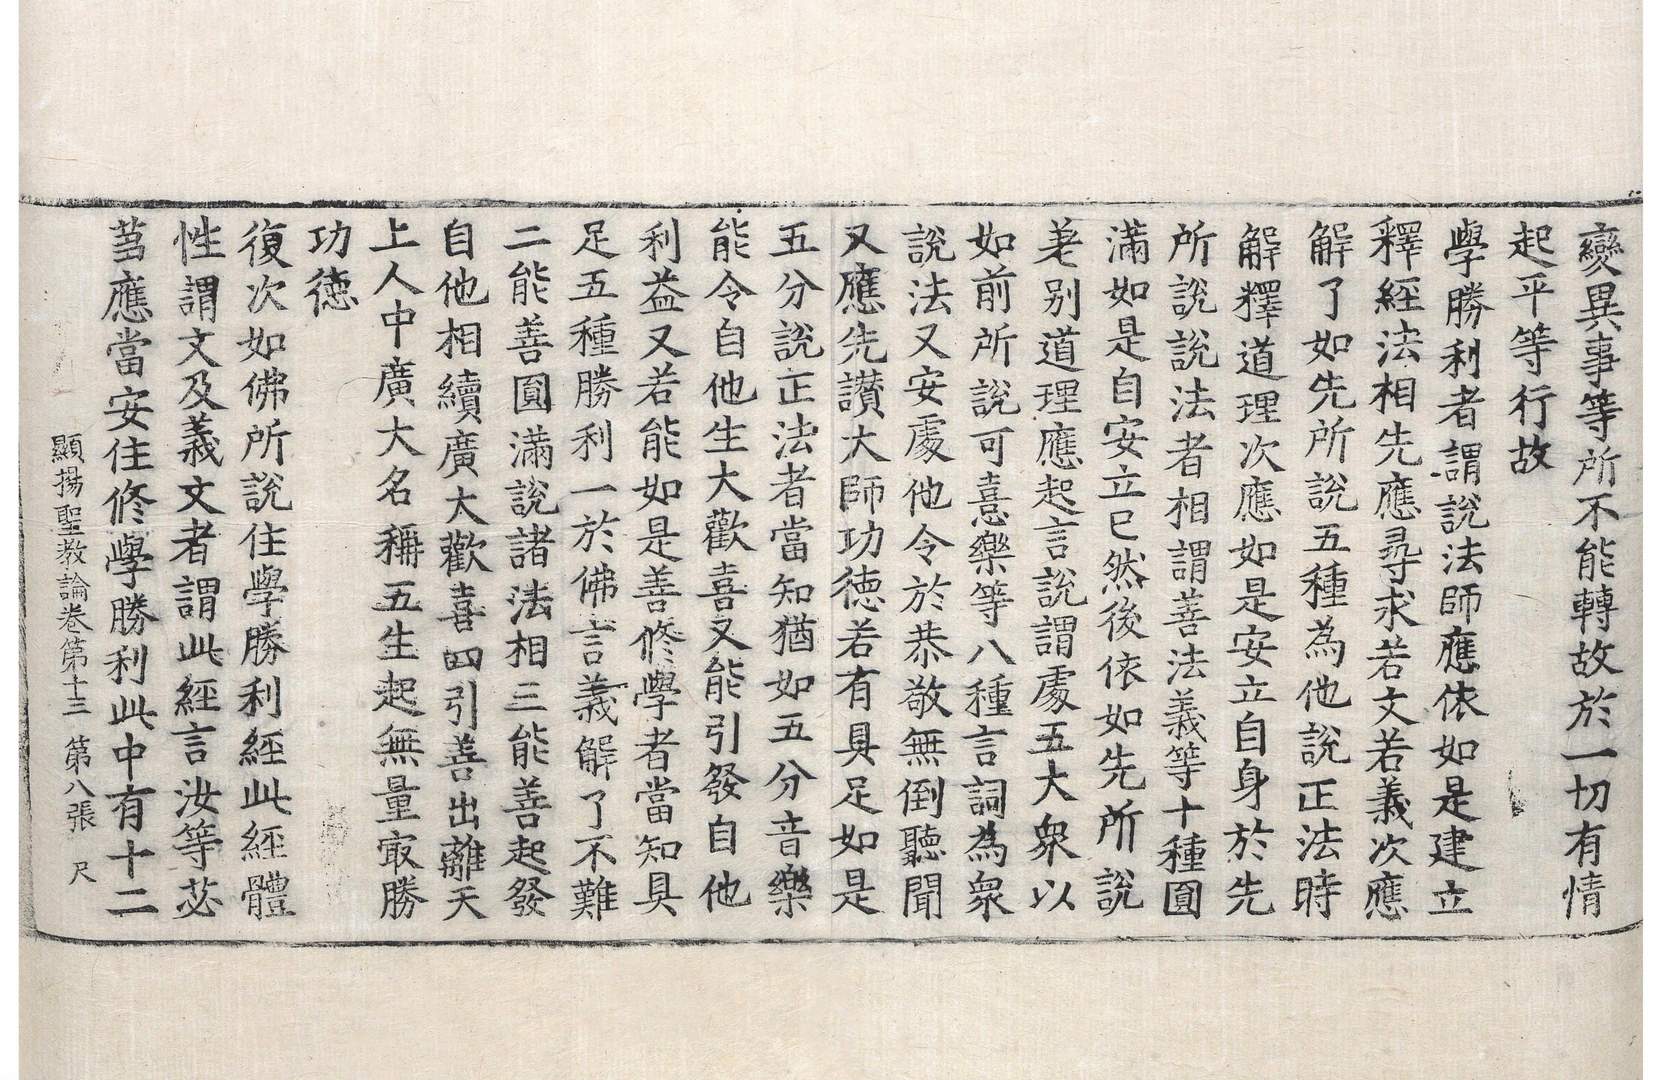 變異事等所不能轉故於一切有情
起平等行故
學勝利者謂說法師應依如是建立
釋經法相先應尋求若文若義次應
解了如先所說五種為他說正法時
解釋道理次應如是安立自身於先
所說說法者相謂善法義等十種圓
滿如是自安立已然後依如先所說
差别道理應起言說謂處五大衆以
如前所說可憙樂等八種言詞為衆
說法又安處他令於恭敬無倒聽聞
又應先讃大師功德若有具足如是
五分說正法者當知猶如五分音樂
能令自他生大歡喜又能引發自他
利益又若能如是善修學者當知具
足五種勝利一於佛言義解了不難
二能善圓滿說諸法相三能善起發
自他相續廣大歡喜四引善出離天
上人中廣大名稱五生起無量㝡勝
功德
復次如佛所說住學勝利經此經體
性謂文及義文者謂此經言汝等苾
芻應當安住修學勝利此中有十二
顯揚聖教論卷第十三 第八張 尺